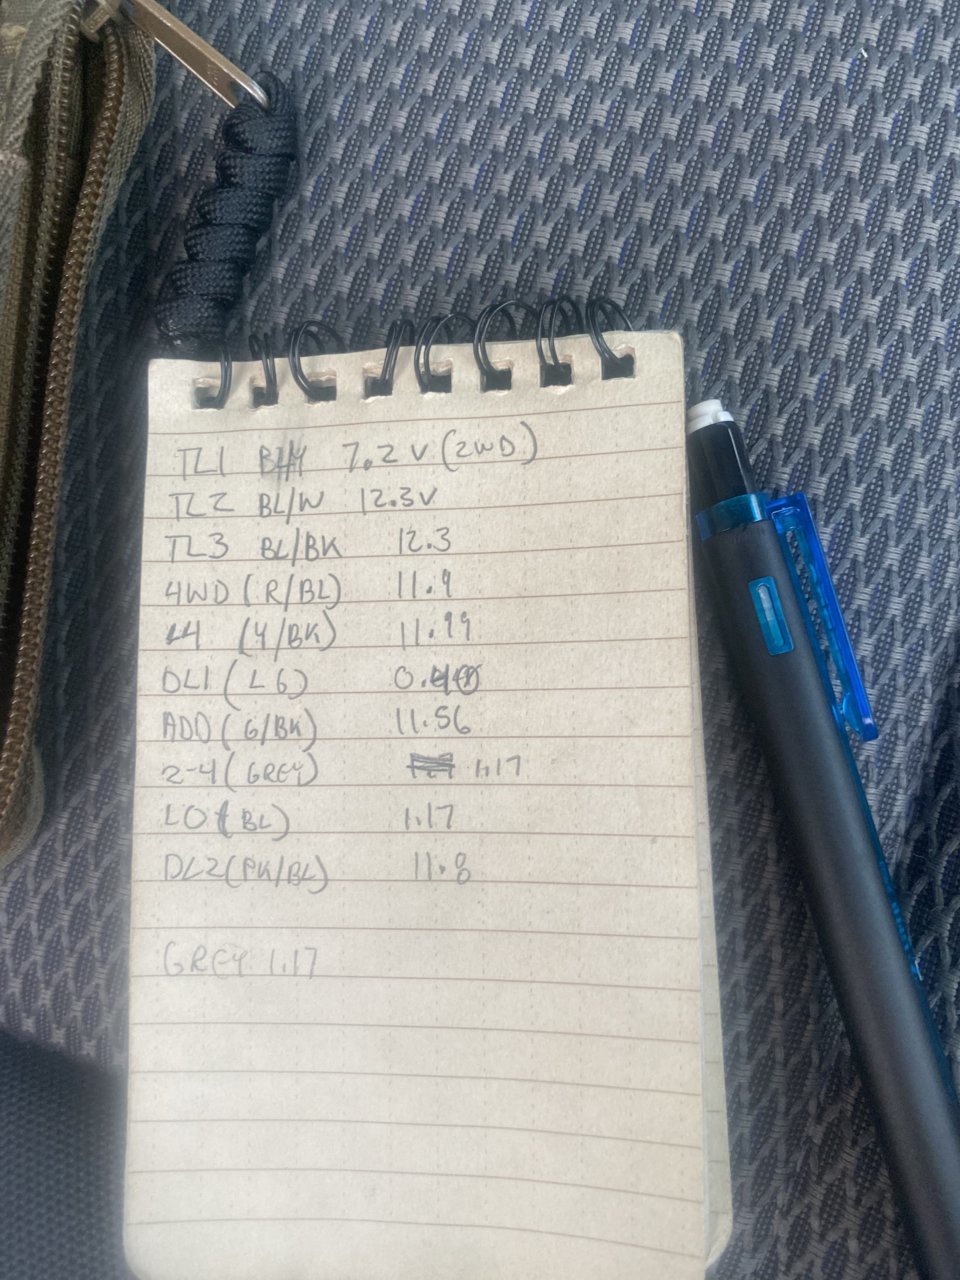 TL1 BL/Y 7.2 V (2WD)
TL2 BL/W 12.3V
TL3 BL/BK 12.3
4WD (R/BL) 11.9
L4 (Y/BK) 11.99
DL1 (LG) 0.40
ADD (G/BK) 11.56
2-4 (GREY) 1.17
LO (BL) 1.17
DL2 (PK/BL) 11.8
GREY 1.17